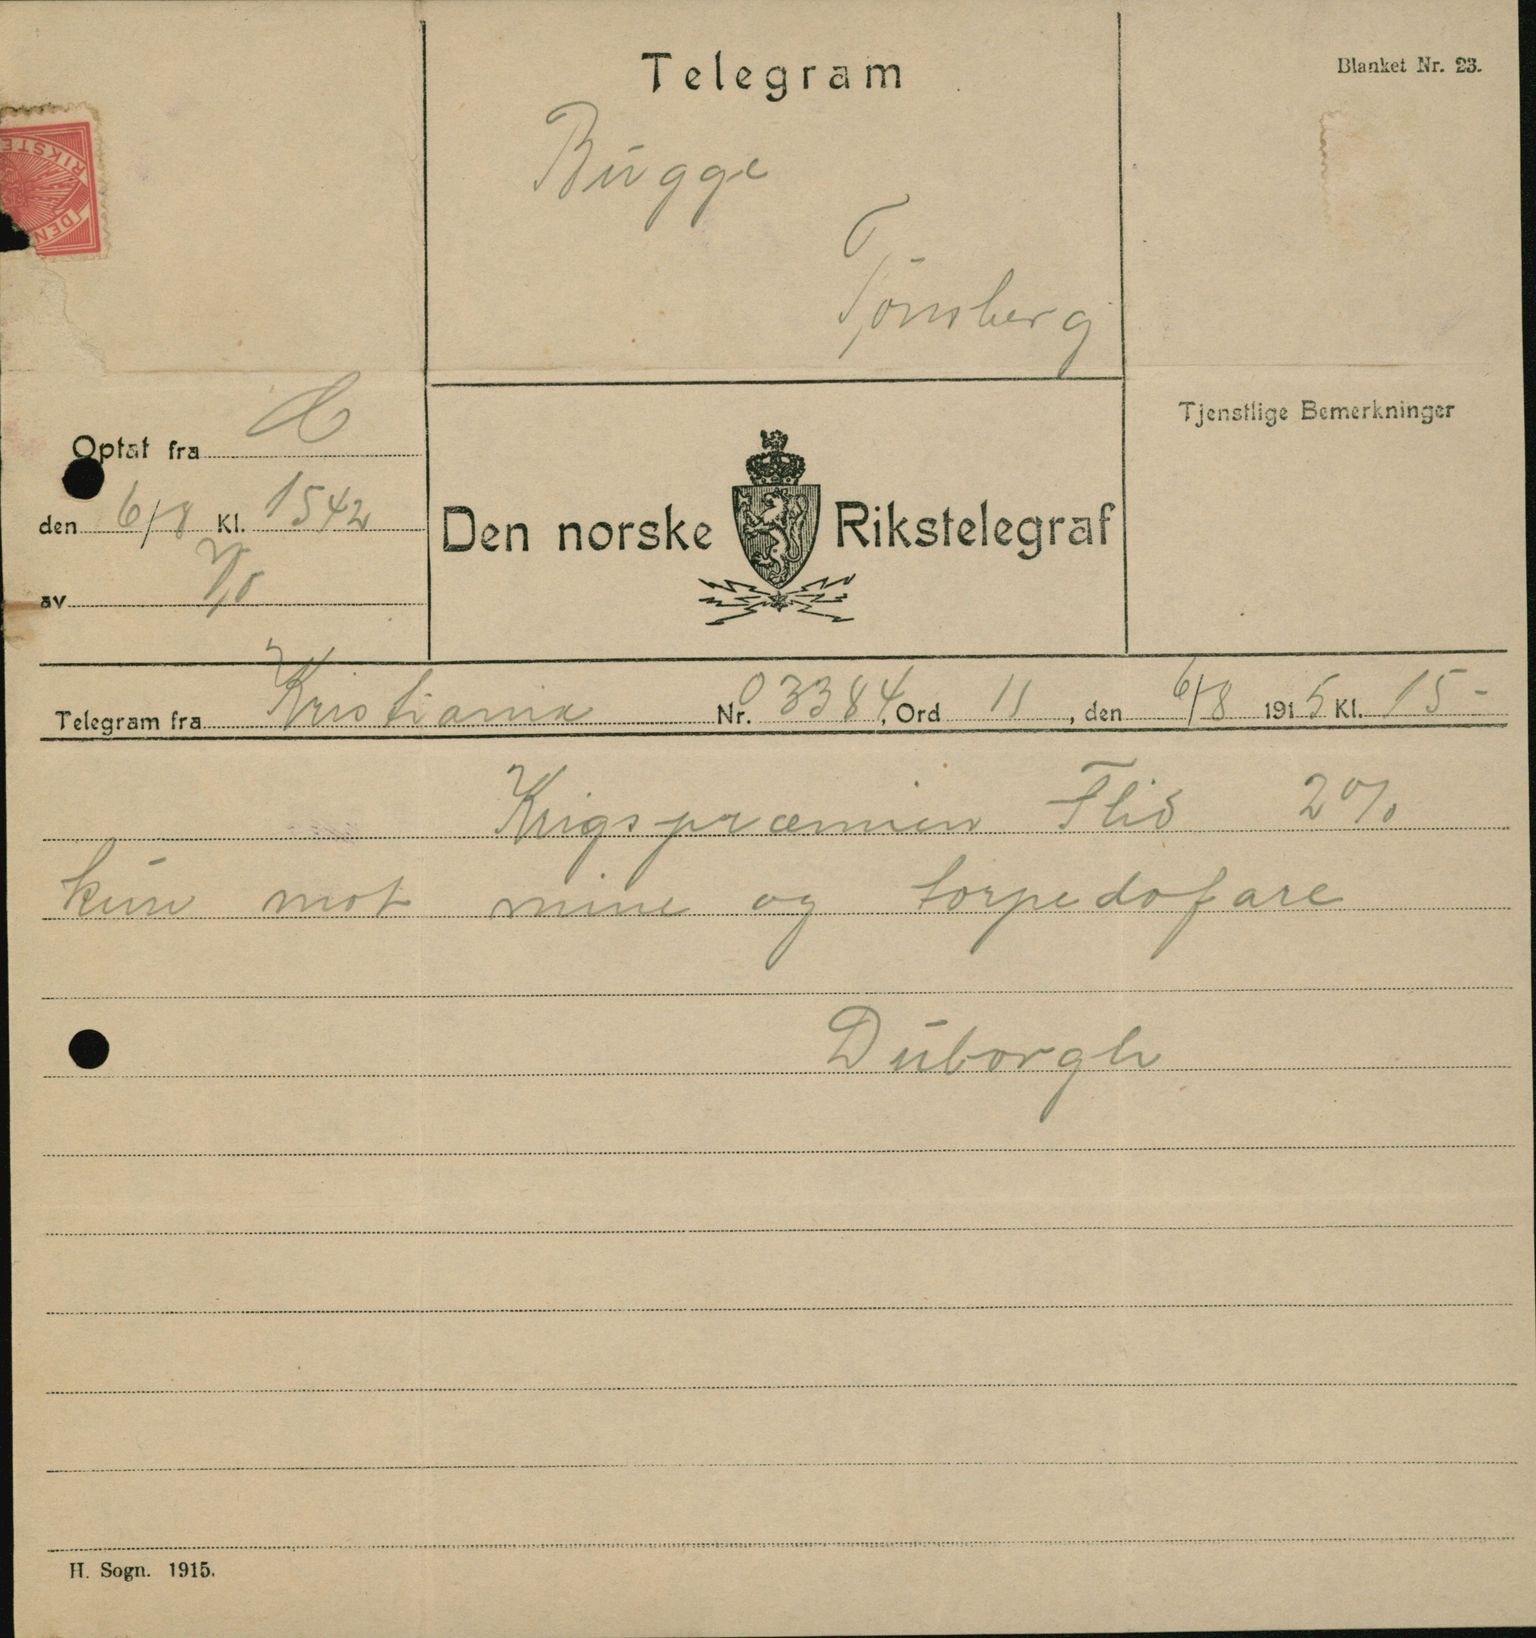 Telegram
Blanket Nr. 23.
Bugge
Tönsberg
RIKSTE
DEN
Tjenstlige Bemerkninger
Optat fra
den 6/8 Kl. 1542
av
Den norske Rikstelegraf
Telegram fra Kristiania Nr. 03384, Ord 11, den 6/8 1915 Kl. 15-
Krigspræmien Flid 2%
kun mot mine og torpedofare
Duborgh
H. Sogn. 1915.